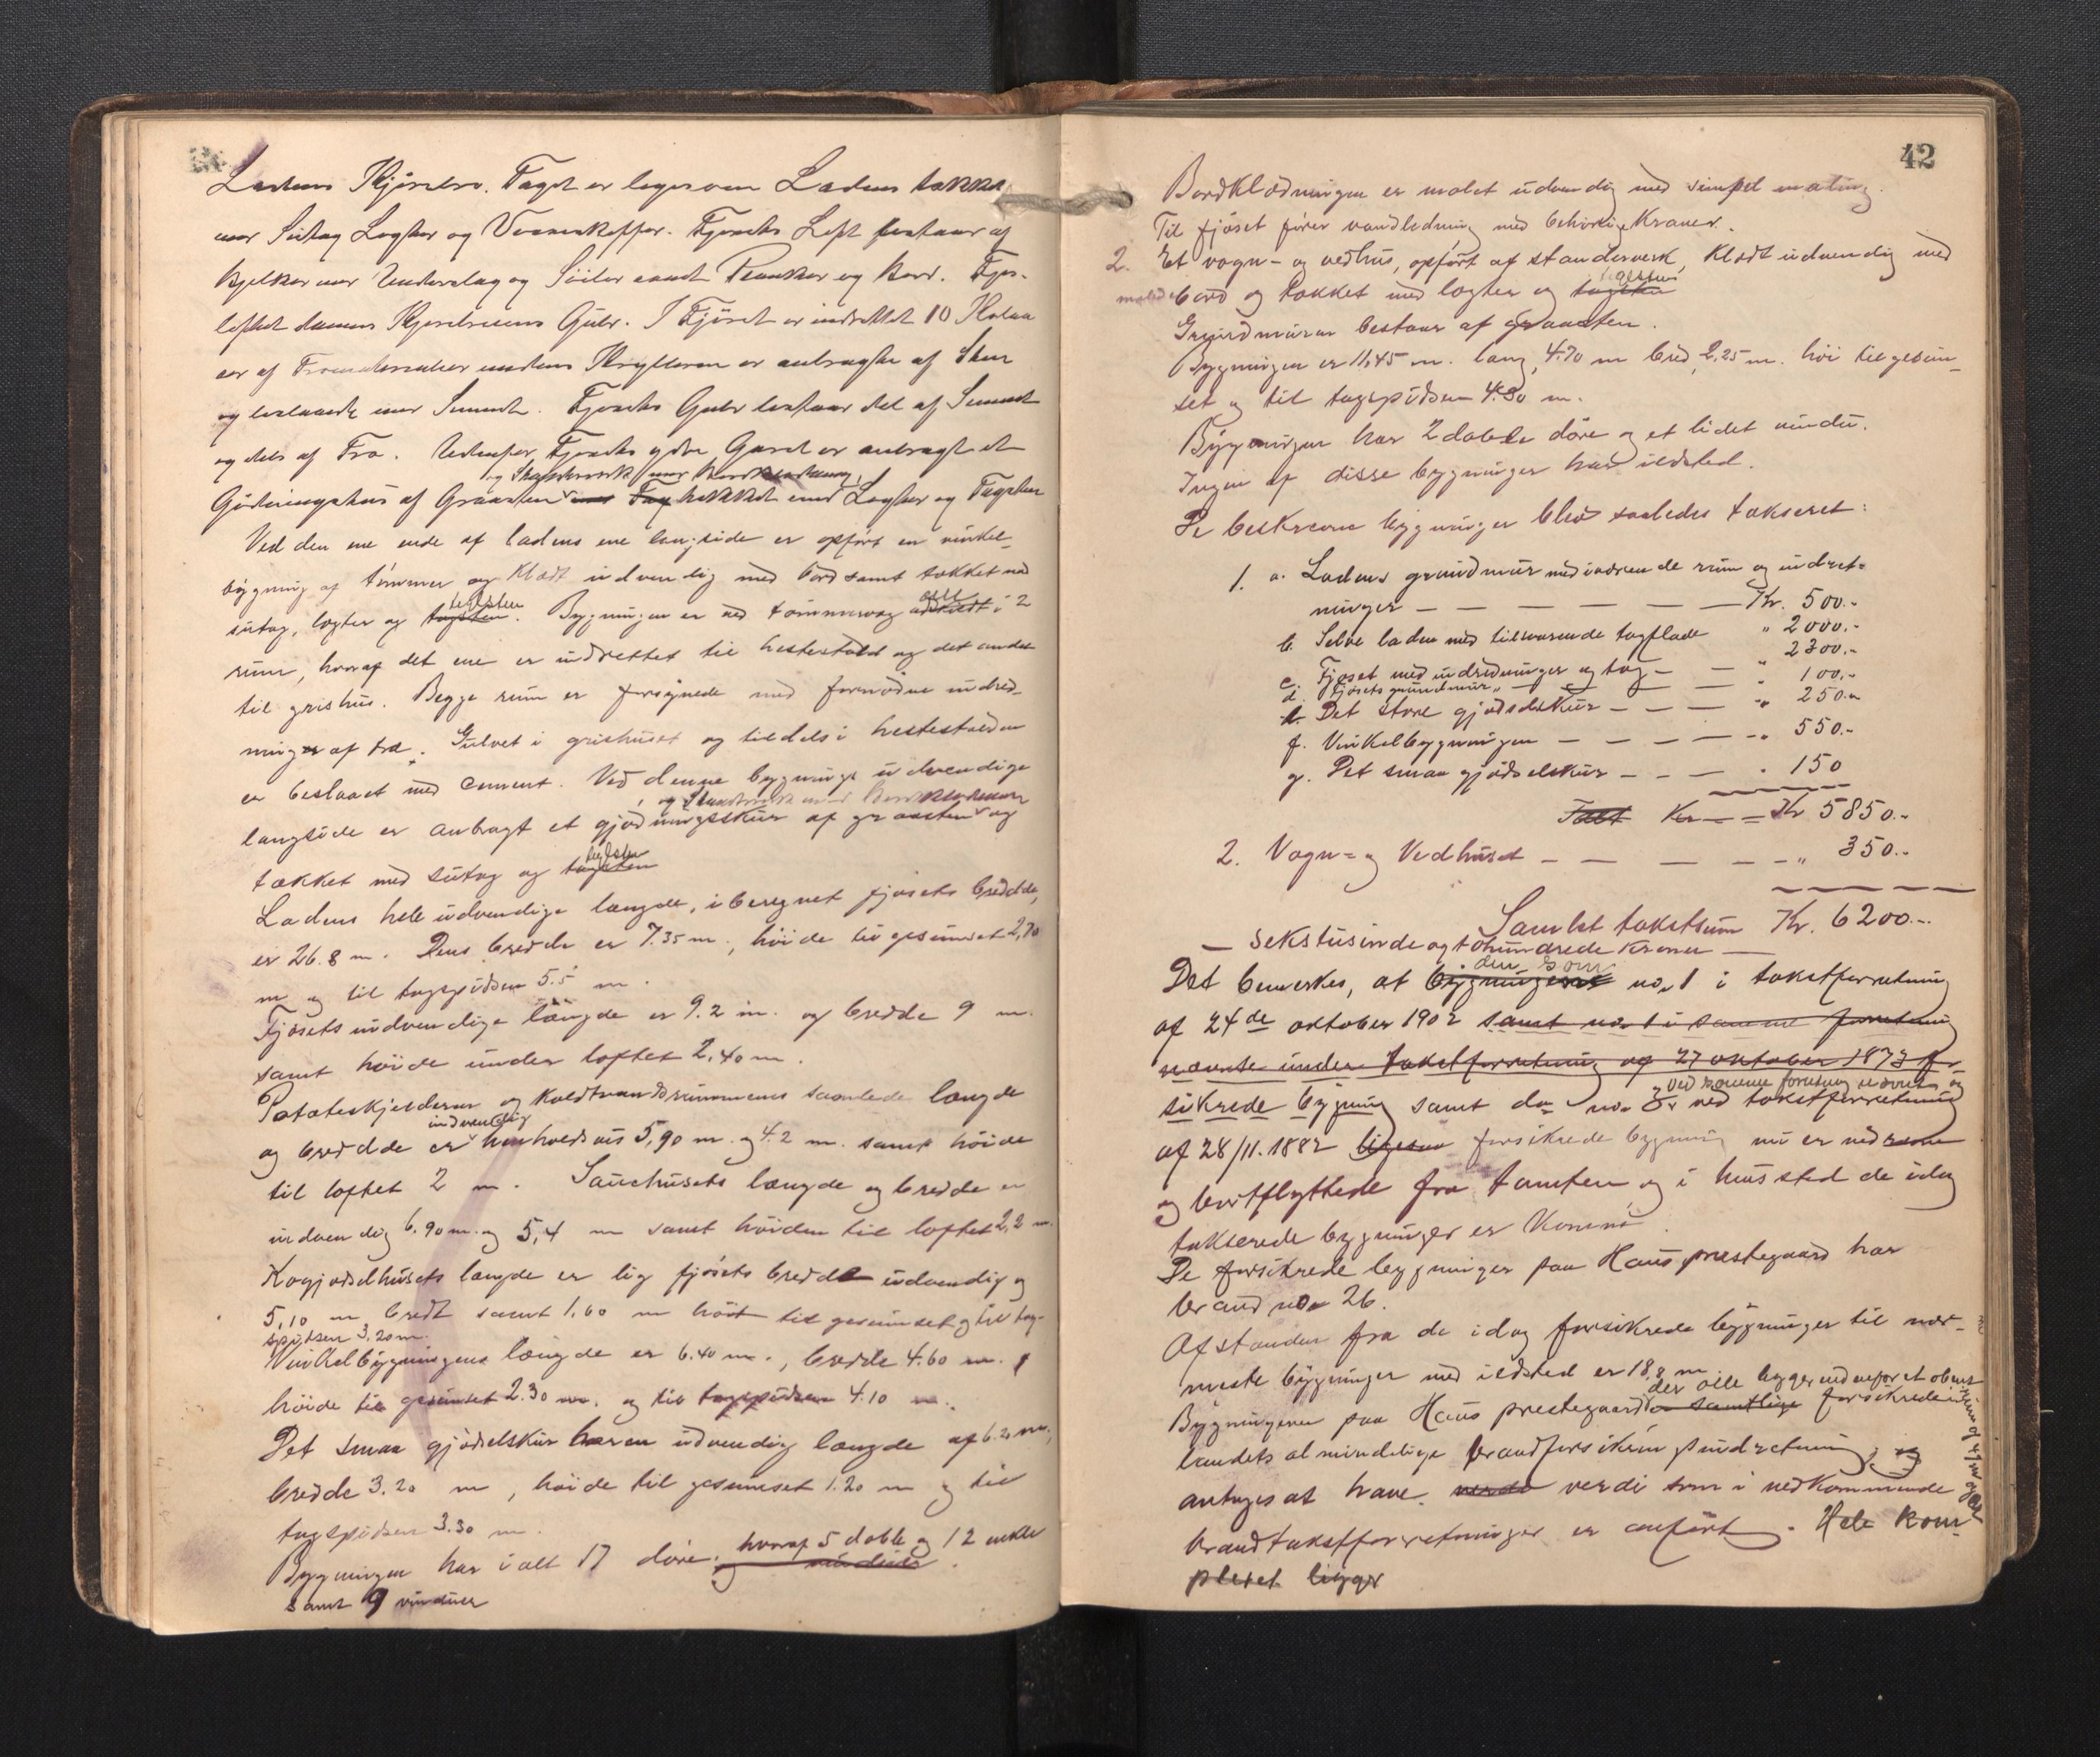 Ladens Kjørebro. Taget er ligesom Ladens tækket
med Sutag Legter og Fjøsets Loft bestaar af
Bjelker med Underslag og Søiler samt Planker og Bord. Fjøs-
loftet danner Kjørebroens Gulv. I Fjøset er indrettet 10 Kobaa
ser af Træmaterialier medens Krybberne er anbragte af Sten
og beslaaede med Sement. Fjøsets Gulv bestaar del af Sement
og dels af Træ. Udenfor Fjøsets ydre Gavel er anbragt et
og Standverk med Bordklædning,
Gjødningshus af Graasten med Tag tækket med Legter og Tagsten
Ved den ene ende af ladens ene langside er opført en vinkel-
bygning af tømmer og klædt udvendig med bord samt tækket med
teglsten
sutag, legter og tagsten. Bygningen er ved tømmervæg adskildt i 2
rum, hvoraf det ene er indrettet til hestestald og det andet
til grishus. Begge rum er forsynede med fornødne indred-
ninger af træ. Gulvet i grishuset og tildels i hestestalden
er beslaaet med cement. Ved denne bygnings udvendige
og Standverk med Bordklædning
langside er anbragt et gjødningsskur af graasten og
teglsten
tækket med sutag og tagsten
Ladens hele udvendige længde, iberegnet fjøsets bredde,
er 26.8 m. Dens bredde er 7.35 m., høide til gesimset 2,70
m og til tagspidsen 5.5 m.
Fjøsets indvendige længde er 9.2 m. og bredde 9 m.
samt høide under loftet 2,40 m.
Potateskjelderen og Koldtvandsrummenes samlede længde
indvendig
og bredde er henholdsvis 5,90 m. og 4.2 m. samt høide
til loftet 2 m. Sauehusets længde og bredde er
indvendig 6.90 m. og 5,4 m samt høiden til loftet 2,2 m.
Kogjødselhusets længde er lig fjøsets bredde udvendig og
5,10 m bredt samt 1,60 m høit til gesimset og til tag-
spidsen 3.20 m.
Vinkelbygningens længde er 6.40 m., bredde 4.60 m.
høide til gesimset 2.30 m. og til tagspidsen 4.10 m.
Det smaa gjødselskur har en udvendig længde af 6.20 m,
bredde 3.20 m, høide til gesimset 1.20 m og til
tagspidsen 3.30 m.
hvoraf 5 doble og 12 enkle
Bygningen har ialt 17 døre og vinduer.
samt 9 vinduer
42
Bordklædningen er malet udvendig med simpel maling.
Til fjøset fører vandledning med behørige Kraner.
2. Et vogn- og vedhus, opført af standerverk, klædt udvendig med
teglsten
malede bord og tækket med legter og tagsten
Grundmuren bestaar af graasten.
Bygningen er 11,45 m. lang, 4.70 m bred, 2,25 m. høi til gesim-
set og til tagspidsen 4.30 m.
Bygningen har 2 doble døre og et lidet vindu.
Ingen af disse bygninger har ildsted.
De beskrevne bygninger blev saaledes takseret:
1. a. Ladens grundmur med indvendige rum og indret-
ninger — — — — — — Kr. 500.-
b. Selve laden med tilsvarende tagflade " 2000.-
c. Fjøset med indredninger og tag — — " 2300.-
d. Fjøsets grundmur — — — — " 100.-
e. Det store gjødselskur — — — " 250.-
f. Vinkelbygningen — — — — " 550.-
g. Det smaa gjødselskur — — — " 150
Talt Kr — — Kr 5850.-
2. Vogn- og Vedhuset — — — — " 350.-
Samlet takstsum Kr. 6200.-
— sekstusinde og tohundrede kroner —
den som
Det bemerkes, at bygningerne no. 1 i takstforretning
af 24de oktober 1902 samt no. 1 i samme forretning
nævnte under takstforretning af 27 oktober 1873 for-
ved samme forretning nævnte og
sikrede bygning samt de no. 8 ved takstforretning
af 28/11. 1882 forsikrede bygning nu er nedrevne
og bortflyttede fra tomten og i hvis sted de idag
takserede bygninger er kommet.
De forsikrede bygninger paa Haus prestegaard har
brand no. 26.
Afstanden fra de idag forsikrede bygninger til nær-
meste bygninger med ildsted er 18,8 m.
der alle ligger
Bygningerne paa Haus prestegaard er samtlige forsikrede i
landets almindelige brandforsikringsindretning, og
antages at have verdi som i vedkommende
brandtakstforretninger er anført. Hele kom-
plexet ligger